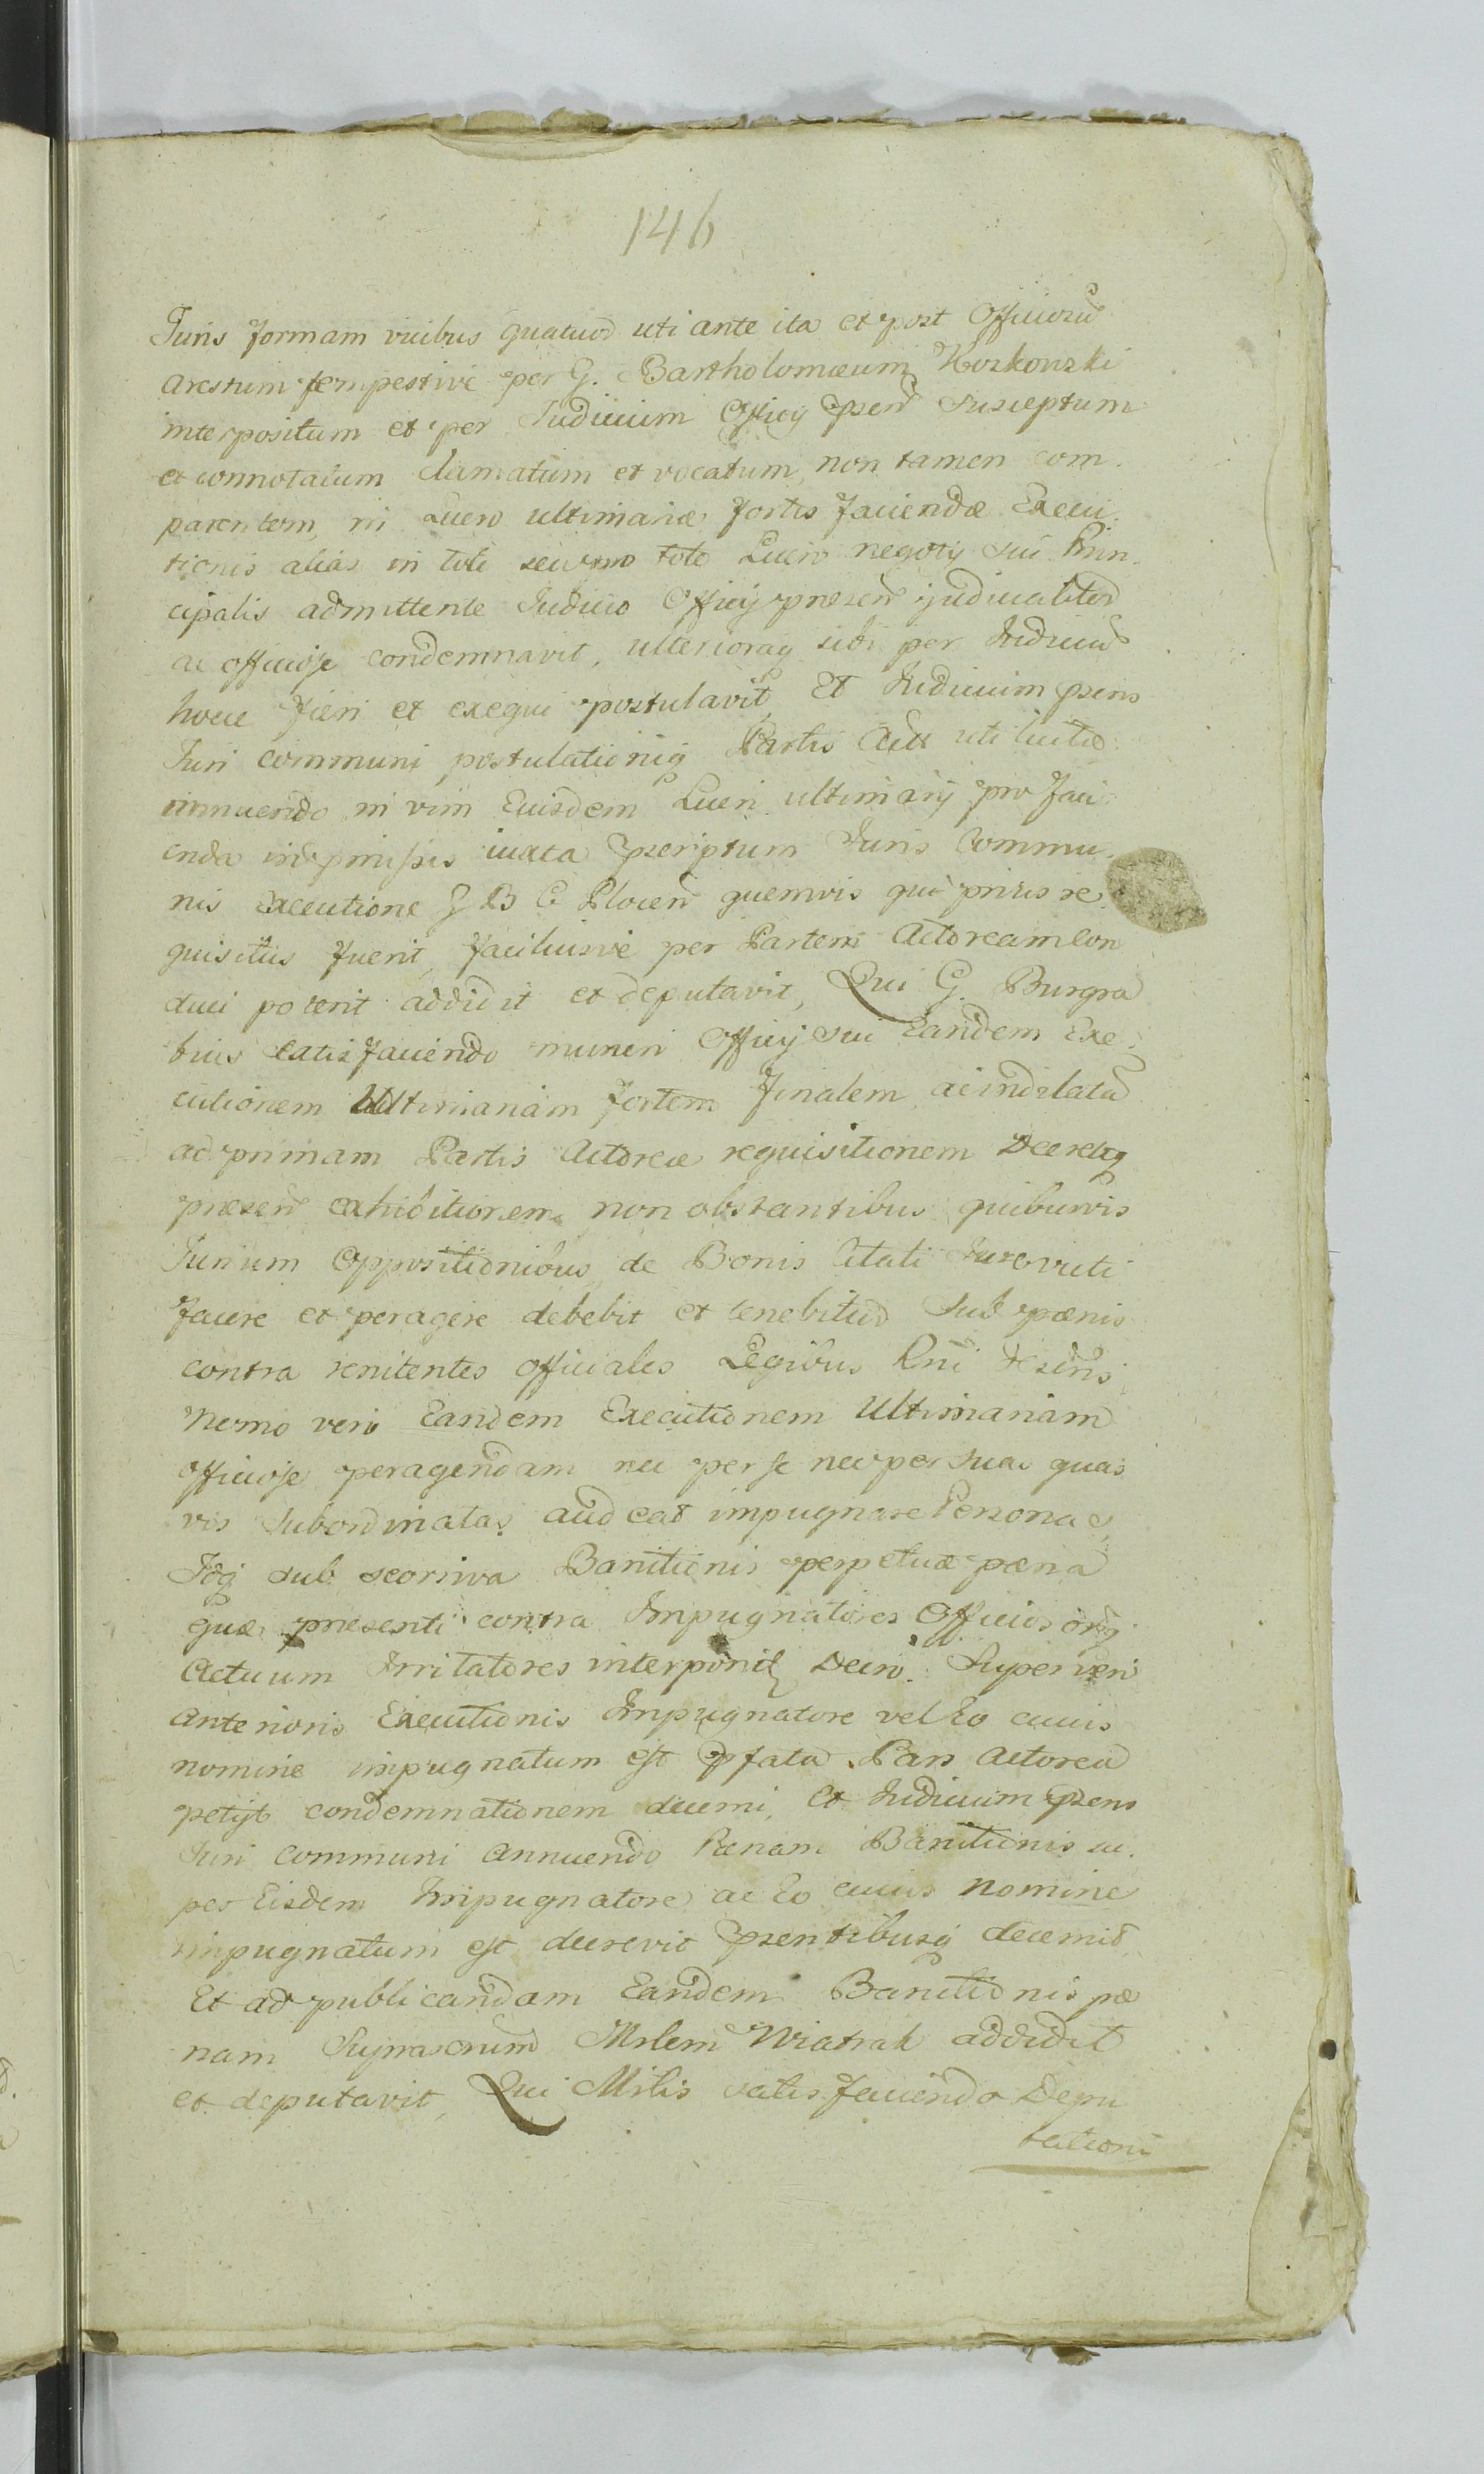 146
Juris formam vicibus quatuor uti ante ita et post Officiosū
arestum tempestive per G. Bartholomæum Koszkowski
interpositum et per Judicium Officij pseñ susceptum
et connotatum clamatum et vocatum, non tamen com-
parentem, in Lucro ultimariæ fortis faciendæ Execu-
tionis alias in toti seu pro toto Lucro negotij sui Prin-
cipalis admittente Judicio Officij præseñ judicialiter
ac officiose condemnavit, ulterioraq sibi per Judiciū
hocce fieri et exequi postulavit, Et Judicium psens
Juri communi postulationiq Partis Actt uti licitæ
innuendo in vim Eiusdem Lucri ultimarij pro faci-
enda in præmissis iuxta pscriptum Juris Commu-
nis executione G B C Ploceñ quemvis qui prius re-
quisitus fuerit, faciliusve per Partem Actoream con
duci poterit addidit et deputavit, Qui G. Burgra
bius satisfaciendo muneri Officij sui Eandem Exe-
cutionem Ultimariam fortem finalem ac indilatā
ad primam Partis Actoreæ requisitionem Decretiq
præseñ exhibitionem non obstantibus quibusvis
Jurium Oppositionibus de Bonis Citati Jurevicti
facere et peragere debebit et tenebitur sub pœnis
contra renitentes officiales Legibus Rni
Nemo vero Eandem Executionem Ultimariam
officiose peragendam nec per se nec per suas quas
vis subordinatas audeat impugnare Personas,
Idq sub seorsiva Banitionis perpetuæ pœna
quæ præsenti contra Impugnatores Officiosorq
Actuum Irritatores interponit Decro. Super veri
anterioris Executionis Impugnatore vel Eo cuius
nomine impugnatum est pfata Pars Actorea
petijt condemnationem decerni, Et Judicium psens
Juri communi annuendo Pœnam Banitionis su-
per Eisdem Impugnatore ac Eo cuius Nomine
impugnatum est decrevit psentibusq decernit,
Et ad publicandam Eandem Banitionis pœ
nam Suprascrium Mrlem Wiatrak addidit
et deputavit, Qui Milis satisfaciendo Depu
tationi